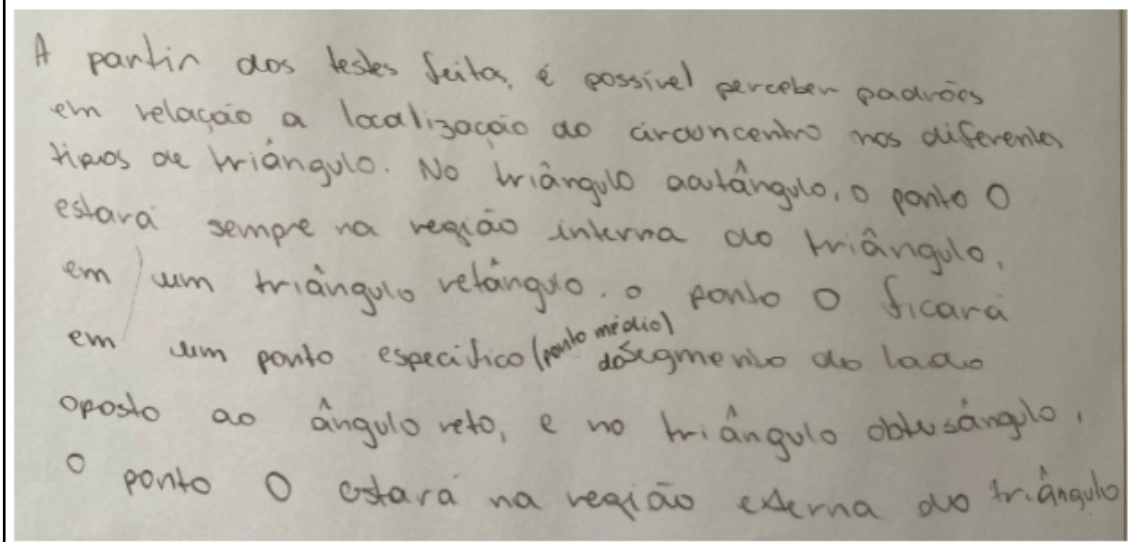 A partir dos testes feitos, é possível perceber padrões
em relação a localização do circuncentro nos diferentes
tipos de triângulo. No triângulo acutângulo, o ponto O
estará sempre na região interna do triângulo,
em um triângulo retângulo, o ponto O ficará
em um ponto específico (ponto médio) do segmento do lado
oposto ao ângulo reto, e no triângulo obtusângulo,
o ponto O estará na região externa do triângulo